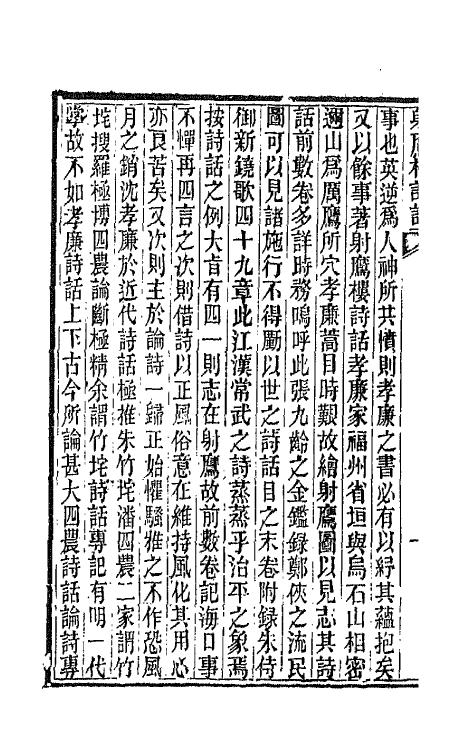 射鷹樓詩話
一
事也英逆爲人神所共憤則孝廉之書必有以紓其蘊抱矣
又以餘事著射鷹樓詩話孝廉家福州省垣與烏石山相密
邇山爲厲鷹所穴孝廉蒿目時艱故繪射鷹圖以見志其詩
話前數卷多詳時務嗚呼此張九齡之金鑑錄鄭俠之流民
圖可以見諸施行不得勵以世之詩話目之末卷附錄朱侍
御新鐃歌四十九章此江漢常武之詩蒸蒸乎治平之象焉
按詩話之例大㫖有四一則志在射鷹故前數卷記海口事
不憚再四言之次則借詩以正風俗意在維持風化其用心
亦良苦矣又次則主於論詩一歸正始懼騷雅之不作恐風
月之銷沈孝廉於近代詩話極推朱竹垞潘四農二家謂竹
垞搜羅極博四農論斷極精余謂竹垞詩話專記有明一代
學故不如孝廉詩話上下古今所論甚大四農詩話論詩專